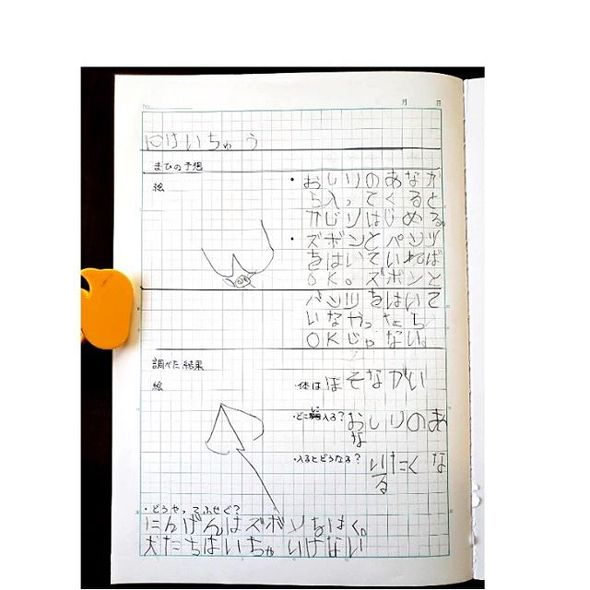 No.
月 日
にけいちゅう
まひの予想
絵
・おしりのあなか
ら入ってくると
かじりはじめる。
・ズボンとパンツ
をはいていれば
OK。ズボンと
パンツをはいて
いなかったら
OKじゃない。
調べた結果
絵
・体は ほそながい
・どこに入る? おしりのあ
な
・入るとどうなる? いたくな
る
・どうやってふせぐ?
にんげんはズボンをはく。
犬たちはいちゃいけない